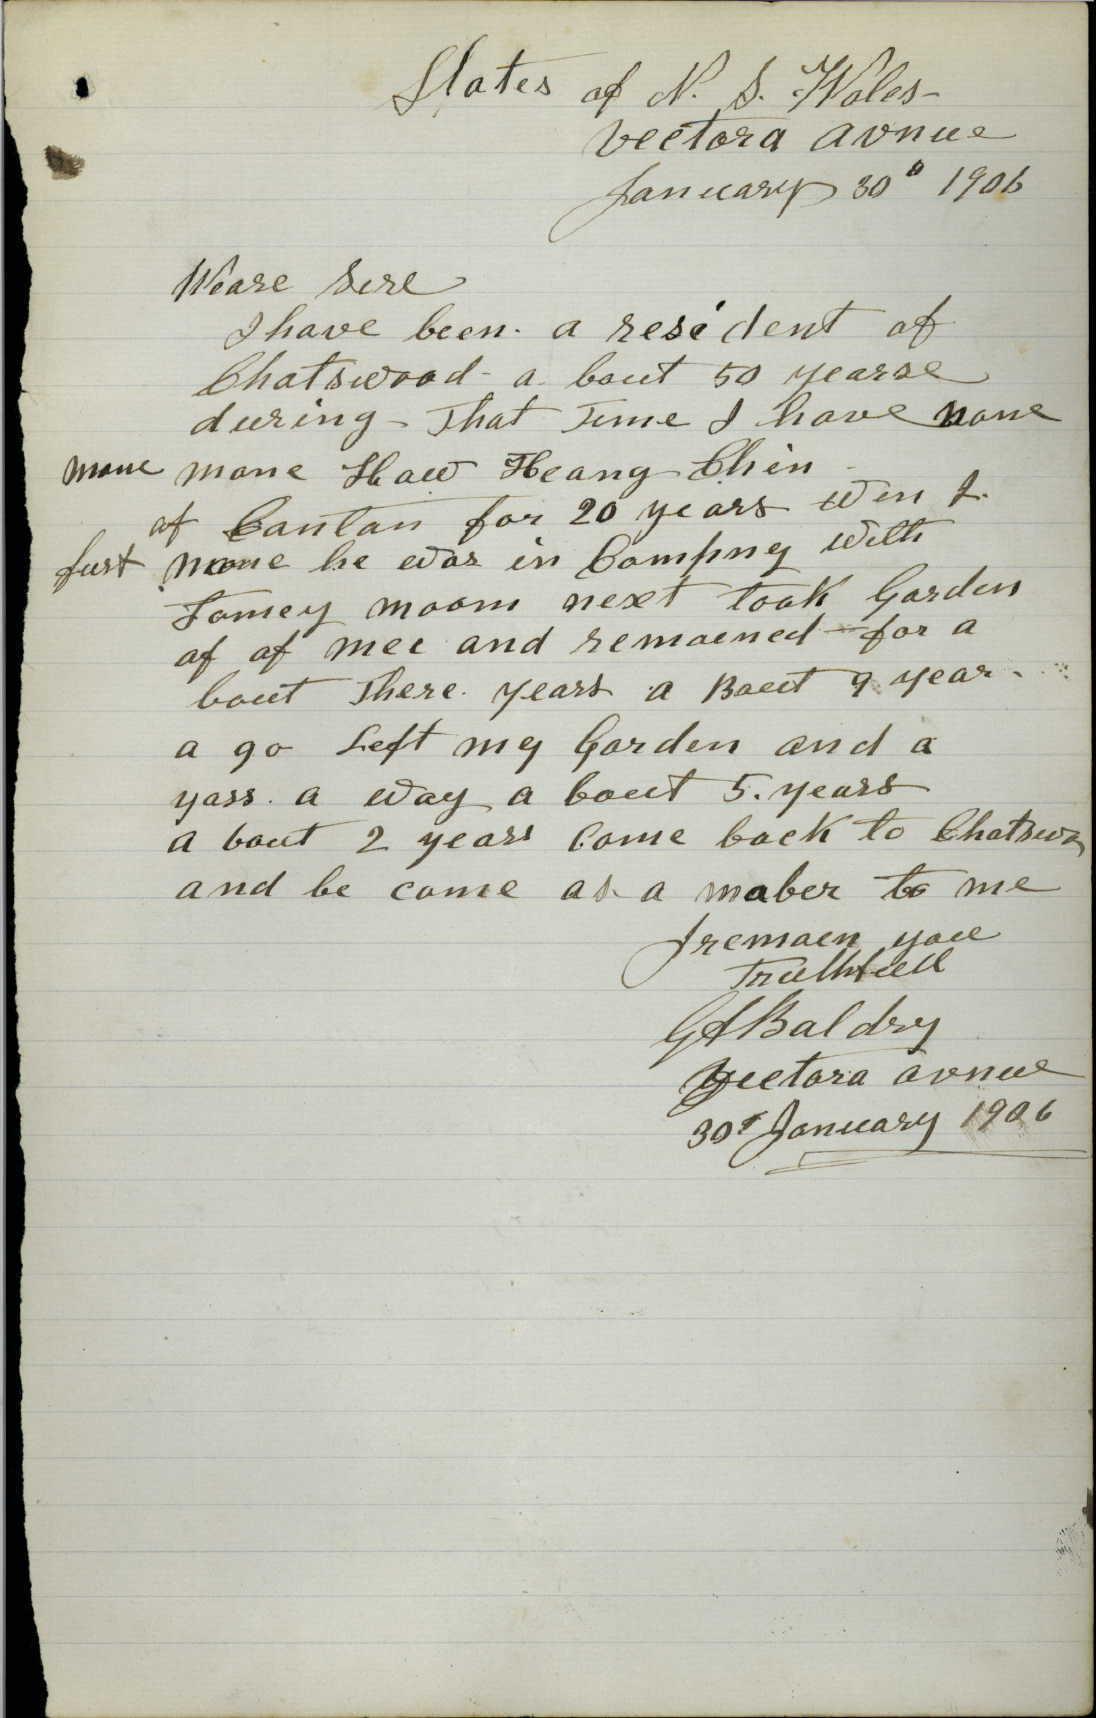 States of N. S. Wales
Vectora Avnue
January 30th 1906
Deare Sire
I have been a resident of
Chatswood a bout 50 yearse
during That Time I have none
mone mone Haw Heang Chin
of Canton for 20 years Win I
furst none he was in Compney with
Tomey moom next took Garden
of of mee and remaened for a
bout There years a Bout 9 year
a go Left my Garden and a
yass a way a bout 5 years
A bout 2 years Come back to Chatswo
and be come as a naber to me
I remaen you
Truthfull
G A Baldry
Vectora avnue
30t January 1906